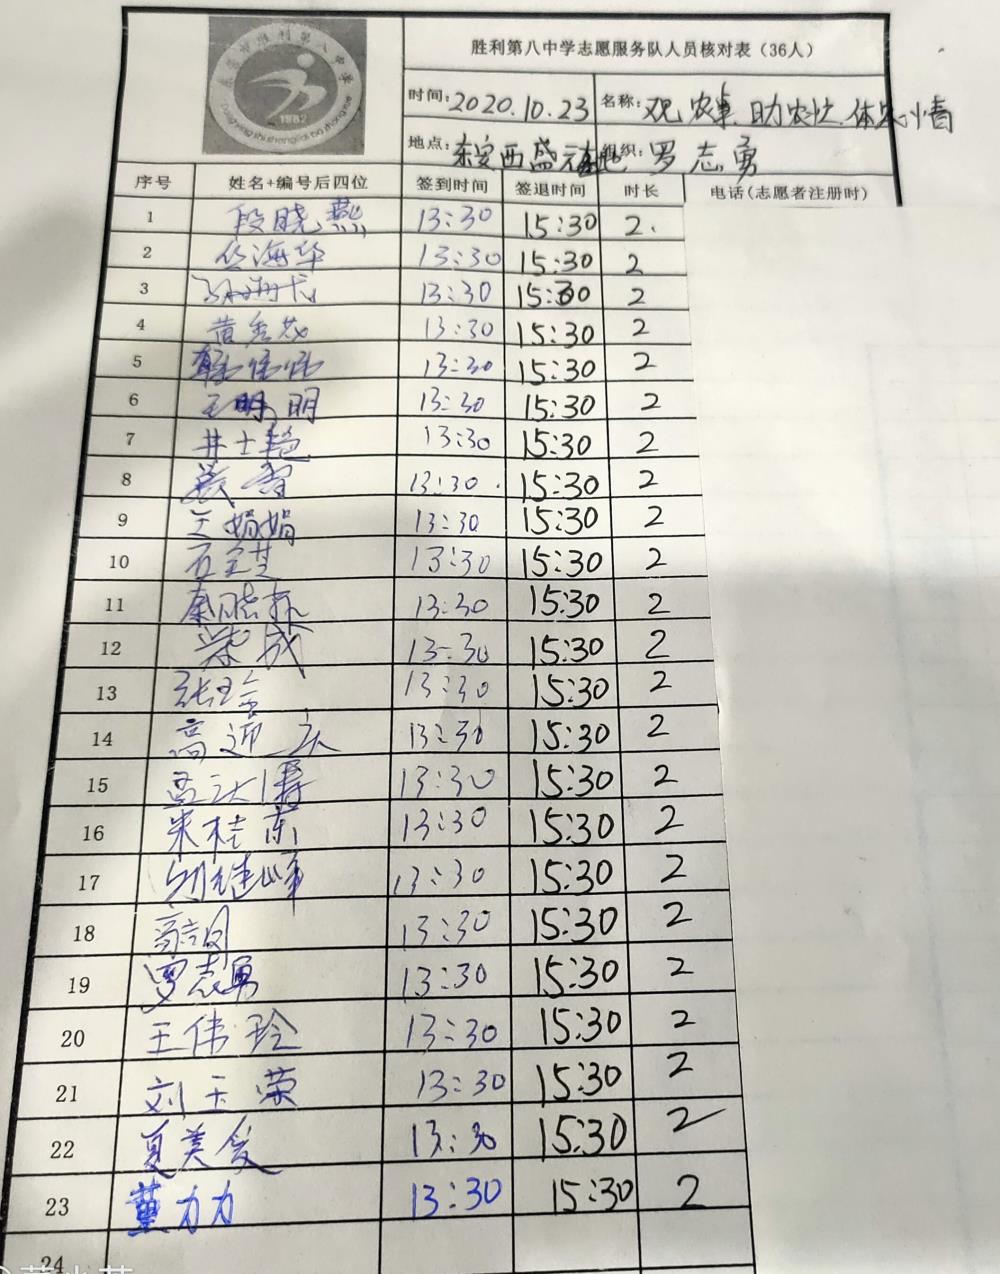 胜利第八中学志愿服务队人员核对表（36人）
时间：2020.10.23 名称：观农 助农忙.体农小情
地点：东安西盛 组织：罗志勇
序号 姓名+编号后四位 签到时间 签退时间 时长 电话(志愿者注册时)
1 段晓燕 13:30 15:30 2.
2 丛海华 13:30 15:30 2
3 13:30 15:30 2
4 黄秀 13:30 15:30 2
5 13:30 15:30 2
6 王明明 13:30 15:30 2
7 井士艳 13:30 15:30 2
8 13:30. 15:30 2
9 王娟娟 13:30 15:30 2
10 石 13:30 15:30 2
11 秦晓 13:30 15:30 2
12 荣成 13:30 15:30 2
13 张 13:30 15:30 2
14 高迎 13:30 15:30 2
15 孟 13:30 15:30 2
16 朱桂东 13:30 15:30 2
17 刘继峰 13:30 15:30 2
18 13:30 15:30 2
19 罗志勇 13:30 15:30 2
20 王伟玲 13:30 15:30 2
21 刘玉荣 13:30 15:30 2
22 夏美爱 13:30 15:30 2
23 董力力 13:30 15:30 2
24
1982